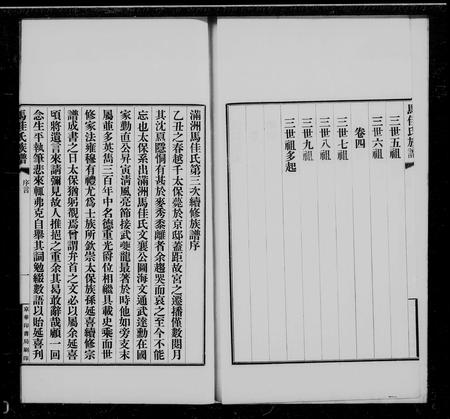 馬佳氏族譜
三世五祖
三世六祖
卷四
三世七祖
三世八祖
三世九祖
三世祖多起
滿洲馬佳氏第三次續修族譜序
乙丑之春越千太保薨於京邸蓋距故宮之遷播僅數閱月
其沈哀隱慟有甚於麥秀黍離者余趨哭而哀之至今不能
忘也太保系出滿洲馬佳氏文襄公圖海文通武達勳在國
家勤直公昇寅清風亮節接武夔龍最著於時他如旁支末
屬並多英雋三百年中名德重光爵位相繼具載史乘而世
修家法雍穆有禮尤爲士族所欽崇太保族孫延喜續修宗
譜成書之日太保猶躬覩焉曾謂弁首之文必以屬余延喜
頃將遺言來請彌見故人推挹之重余其曷敢辭哉顧一回
念生平執筆悲來輒弗克自舉其詞勉綴數語以貽延喜刊
馬佳氏族譜
序言
一
京華印書局刷印